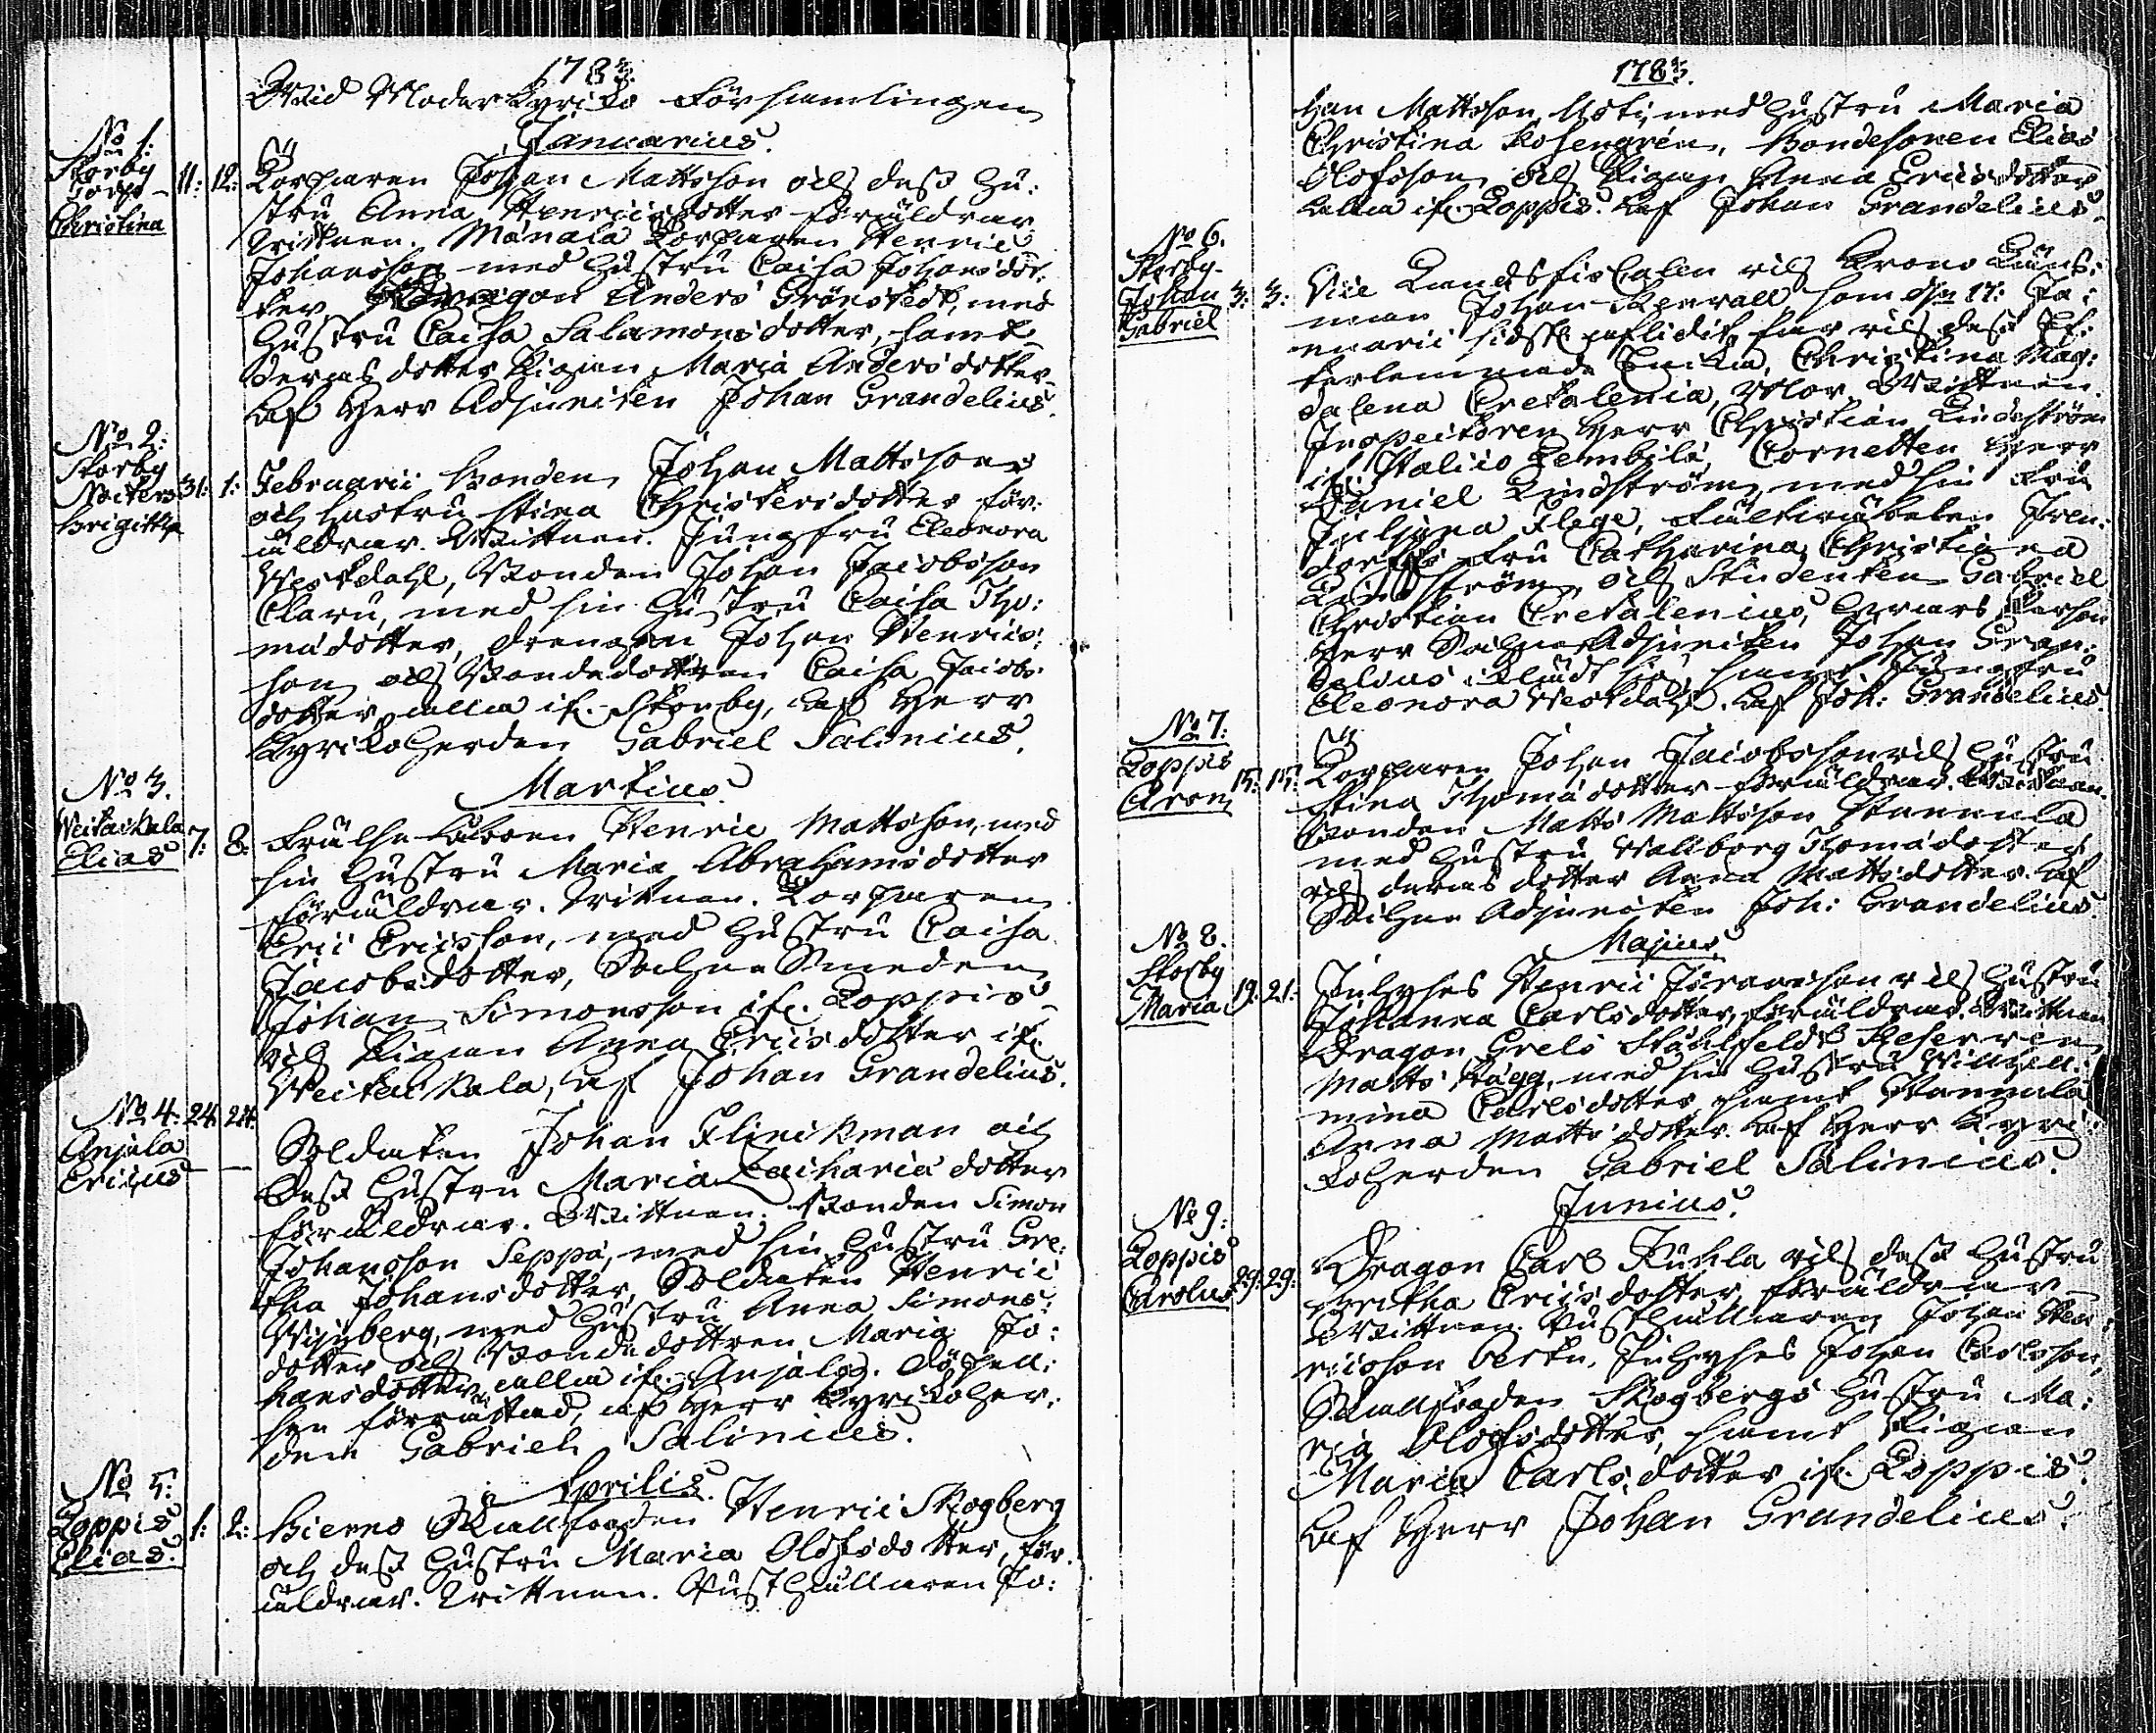 1783.
Wid Moder Kyrko Församlingen
Januarius.
No 1:
Storby
Christina
11: 12:
Torparen Johan Mattsson och dess Hu:
stru Anna Henricsdotter föräldrar
Wittnen. Manala Torparen Henric
Johansson med Hustru Caisa Johansdot:
ter, Anders Grönstedt, med
Hustru Caisa Salamonsdotter, samt
deras dotter Pigan Maria Andersdotter
af Herr Adjuncten Johan Grandelius.
No 2:
Storby
Brigitta
31: 1:
Februarii Bonden Johan Mattsson
och Hustru Stina Christersdotter för:
äldrar. Wittnen. Jungfru Eleonora
Westdahl, Bonden Johan Jacobsson
Claru, med sin Hustru Caisa Tho:
madotter, drengen Johan Henrics:
son och Bondedottren Caisa Jacobs
dotter alla if. Storby, af Herr
Kyrkoherden Gabriel Salinius.
Martius
No 3.
Weitackala
Elias
7: 8:
Frälse Henric Mattsson, med
sin Hustru Maria Abrahamsdotter
föräldrar. Wittnen. Torparen
Eric Ericsson, med Hustru Caisa
Jacobsdotter, Sockne Smeden
Johan Simonsson if. Loppis
och Pigan Anna Ericsdotter if.
Weitackala, af Johan Grandelius.
No 4:
Anjala
Ericus
24 24:
Soldaten Johan Flinckman och
dess Hustru Maria Zachariadotter
föräldrar. Wittnen. Bonden Simon
Johansson Seppä, med sin Hustru Gre:
tha Johansdotter, Soldaten Henric
Wijsberg, med Hustru Anna Simons:
dotter och Bondedottren Maria Jo:
hansdotter alla if. Anjala. döpel:
sen förrättad, af Herr Kyrkoher:
den Gabriel Salinius.
Aprilis.
No 5:
Loppis
Elias.
1: 2:
Henric Skogberg
och dess Hustru Maria Olofsdotter, för:
äldrar. Wittnen. Rusthållaren Jo:
1783.
han Mattsson Uoti, med Hustru Maria
Christina Rosengrén, Bondesonen Elias
Olofsson och Pigan Anna Ericsdotter
alla if. Loppis. af Johan Grandelius.
No 6.
Storby
Johan
Gabriel
3: 3:
Vice Landsfiscalen och Krono Läns:
man Johan som d. 17: Ja:
nuarii sidstl. afliditt far och dess Ef:
terlemnade Enckia, Christina Mag:
dalena Cretalenia, Mor. Wittnen.
Inspectoren Herr Christian Lindström
if. Cornetten Herr
Daniel Lindström med sin Fru
Juliana Flege, Fru Catharina Christiana
Lindström, och Studenten Gabriel
Christian Cretalenius,
Herr Sockne Adjuncten Johan Gran:
delius samt Jungfru
Eleonora Westdahl. af Joh: Grandelius.
No 7:
Loppis
Aron
15: 15:
Torparen Johan Jacobsson och Hustru
Stina Thomadotter föräldrar. Wittnen.
Bonden Matts Mattsson
med Hustru Wallborg Thomadotter
och deras dotter Anna Mattsdotter. af
Sockne Adjuncten Joh: Grandelius
Majus
No 8.
Storby
Maria
19: 21:
Inhyses Henric och Hustru
Johanna Carlsdotter, föräldrar. Wittnen
Dragon Grels Stahlfeldt
Matts Hagg, med sin Hustru Wilhel:
mina Carlsdotter samt
Anna Mattsdotter. af Herr Kyr:
koherden Gabriel Salinius.
Junius.
No 9:
Loppis
Carolus
29: 29:
Dragon Carl Kuhla och dess Hustru
Gretha Ericsdotter, föräldrar
Wittnen. Rusthållaren Johan Hen:
ricsson Inhyses Johan Carlsson,
Skogbergs Hustru Ma:
ria Olofsdotter, samt Pigan
Maria Carlsdotter if. Loppis.
af Herr Johan Grandelius.